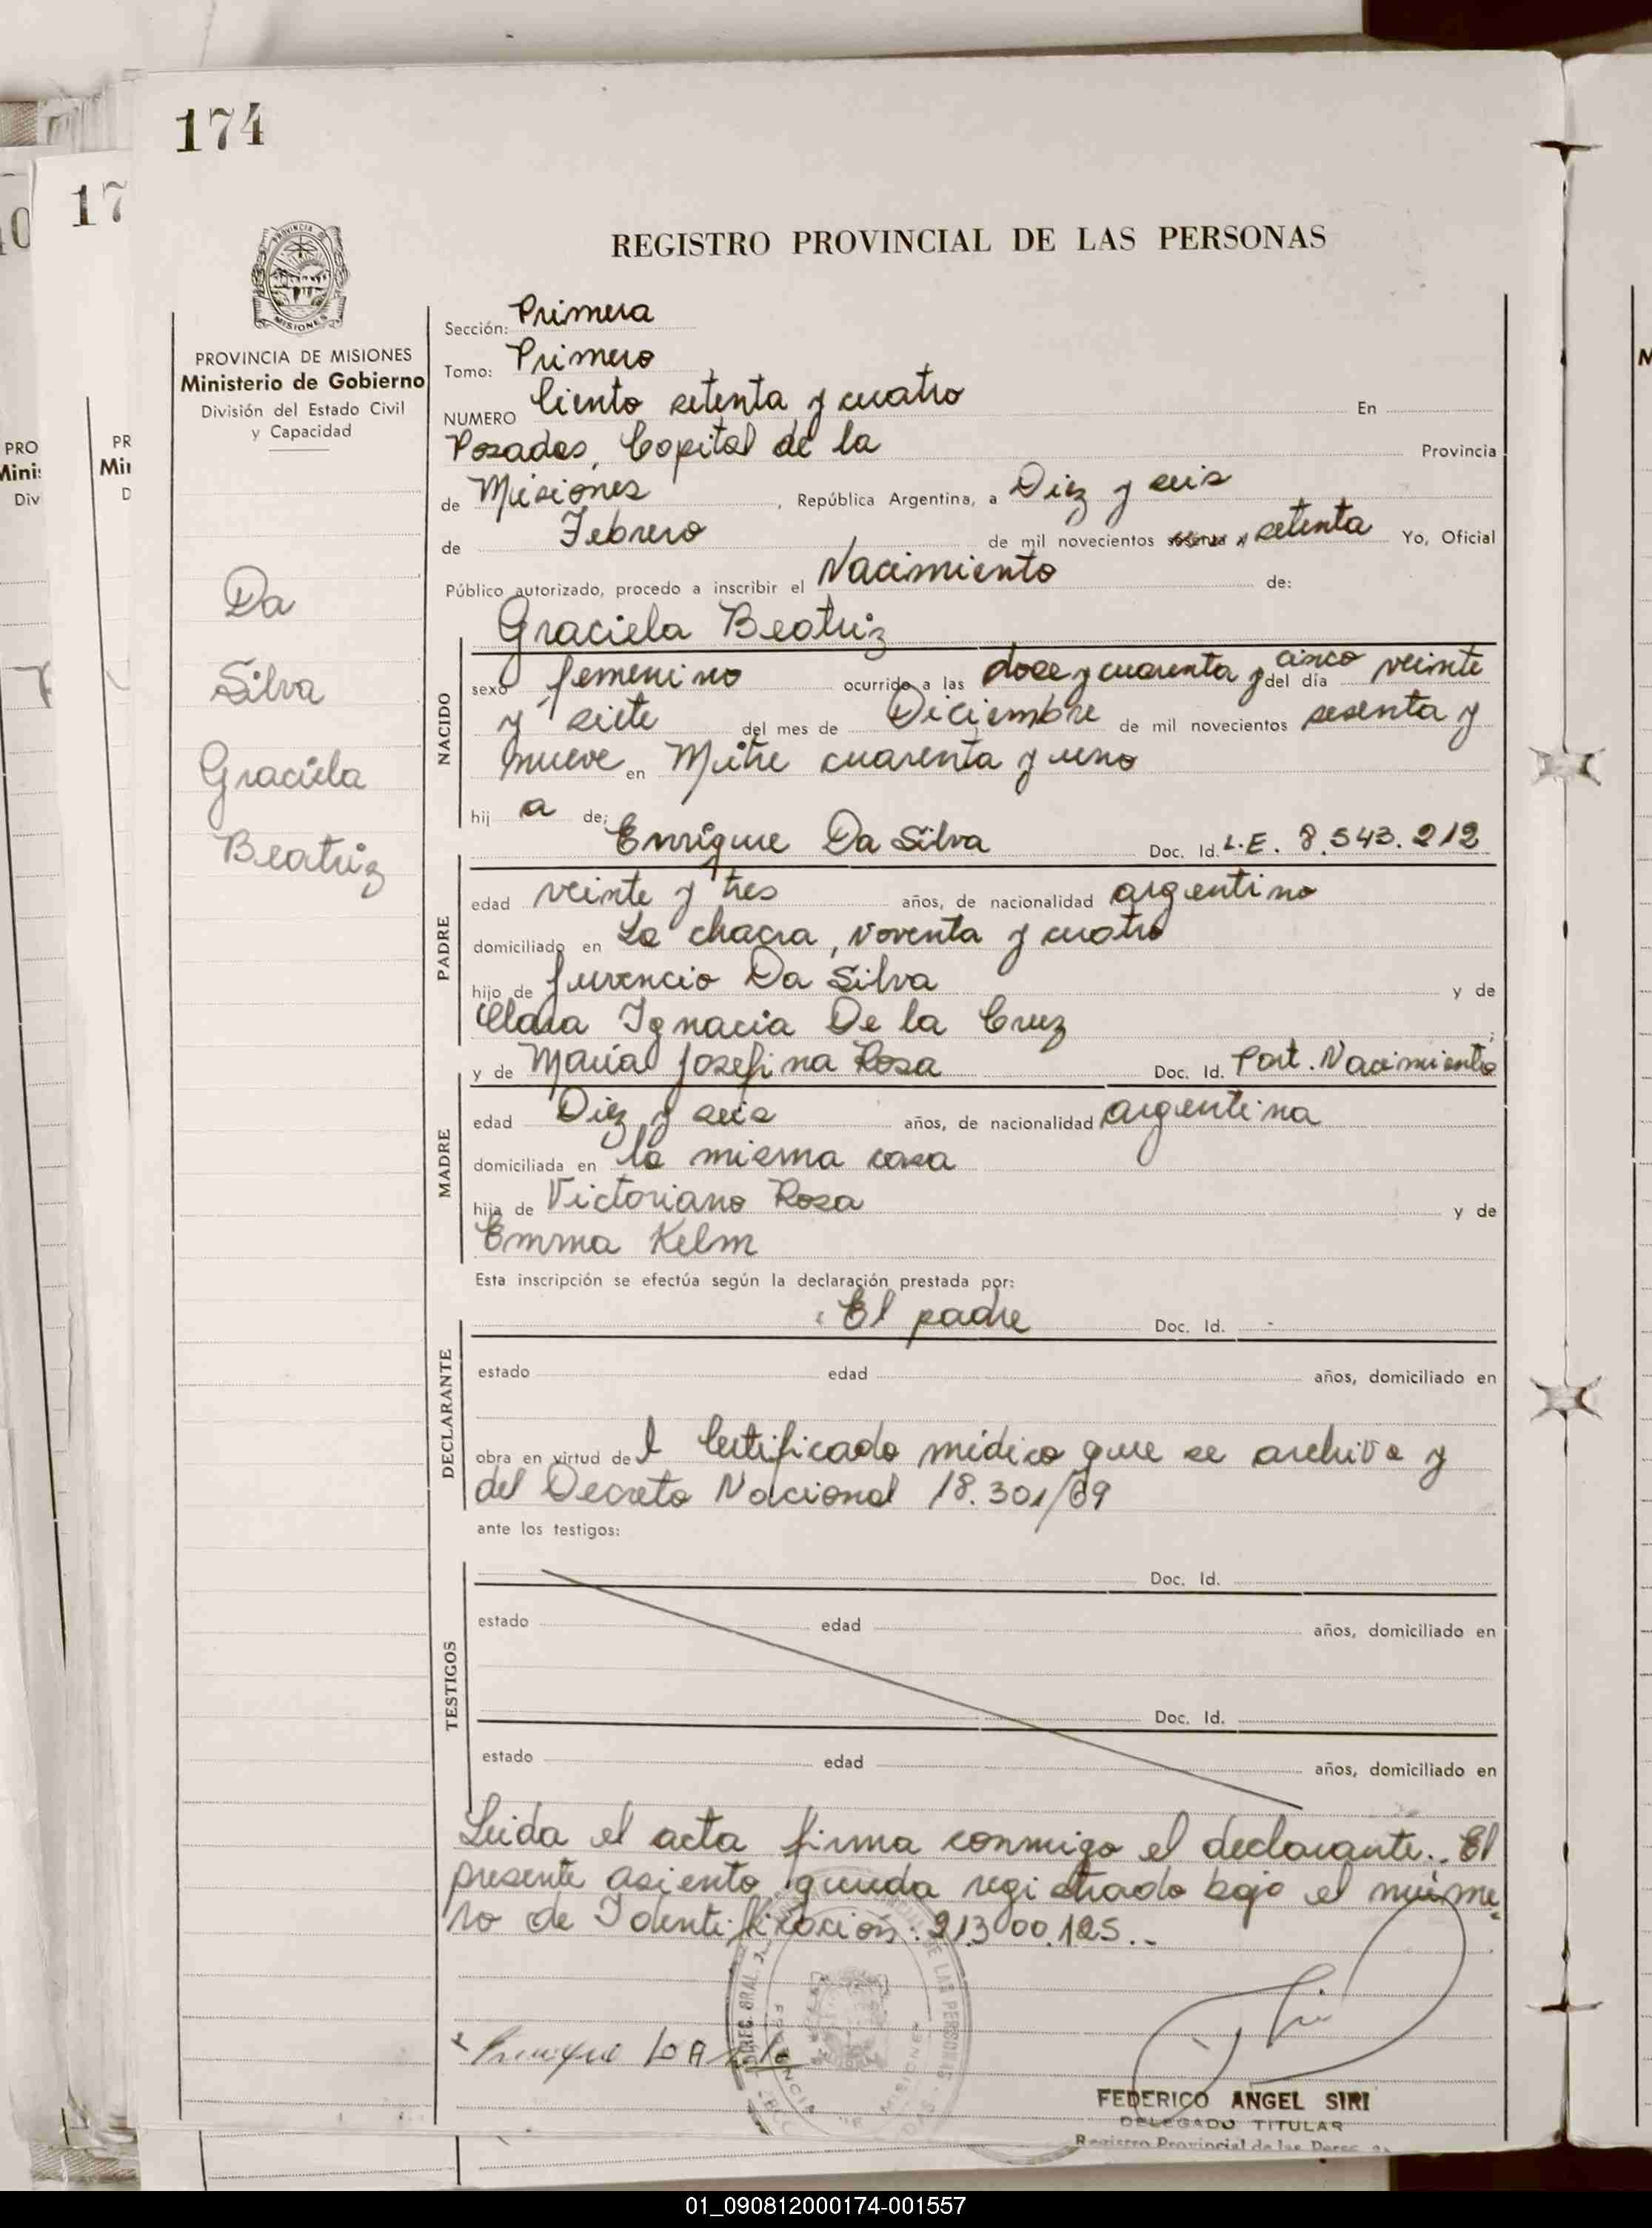 174
17
REGISTRO PROVINCIAL DE LAS PERSONAS
MISIONES
PROVINCIA DE MISIONES
Ministerio de Gobierno
División del Estado Civil
y Capacidad
Da
Silva
Graciela
Beatriz
Sección: Primera
Tomo: Primero
NUMERO Ciento setenta y cuatro En
Posadas, Capital de la Provincia
de Misiones, República Argentina, a Diez y seis
de Febrero de mil novecientos setenta Yo, Oficial
Público autorizado, procedo a inscribir el Nacimiento de:
Graciela Beatriz
NACIDO
sexo femenino ocurrido a las doce y cuarenta y cinco del día veinte
y siete del mes de Diciembre de mil novecientos sesenta y
nueve en Mitre cuarenta y uno
hij a de:
Enrique Da Silva Doc. Id. L.E. 8.543.212
PADRE
edad veinte y tres años, de nacionalidad argentino
domiciliado en La chacra, noventa y cuatro
hijo de Juvencio Da Silva y de
Clara Ignacia De la Cruz;
y de María Josefina Rosa Doc. Id. Part. Nacimiento
MADRE
edad Diez y seis años, de nacionalidad argentina
domiciliada en la misma casa
hija de Victoriano Rosa y de
Emma Kelm
Esta inscripción se efectúa según la declaración prestada por:
El padre Doc. Id. -
DECLARANTE
estado edad años, domiciliado en
obra en virtud del Certificado médico que se archiva y
del Decreto Nacional 18.301/69
ante los testigos:
TESTIGOS
Doc. Id.
estado edad años, domiciliado en
Doc. Id.
estado edad años, domiciliado en
Leida el acta firma conmigo el declarante.. El
presente asiento queda registrado bajo el núme-
ro de Identificación: 21.300.125.-
FEDERICO ANGEL SIRI
DELEGADO TITULAR
Registro Provincial de las
01_090812000174-001557